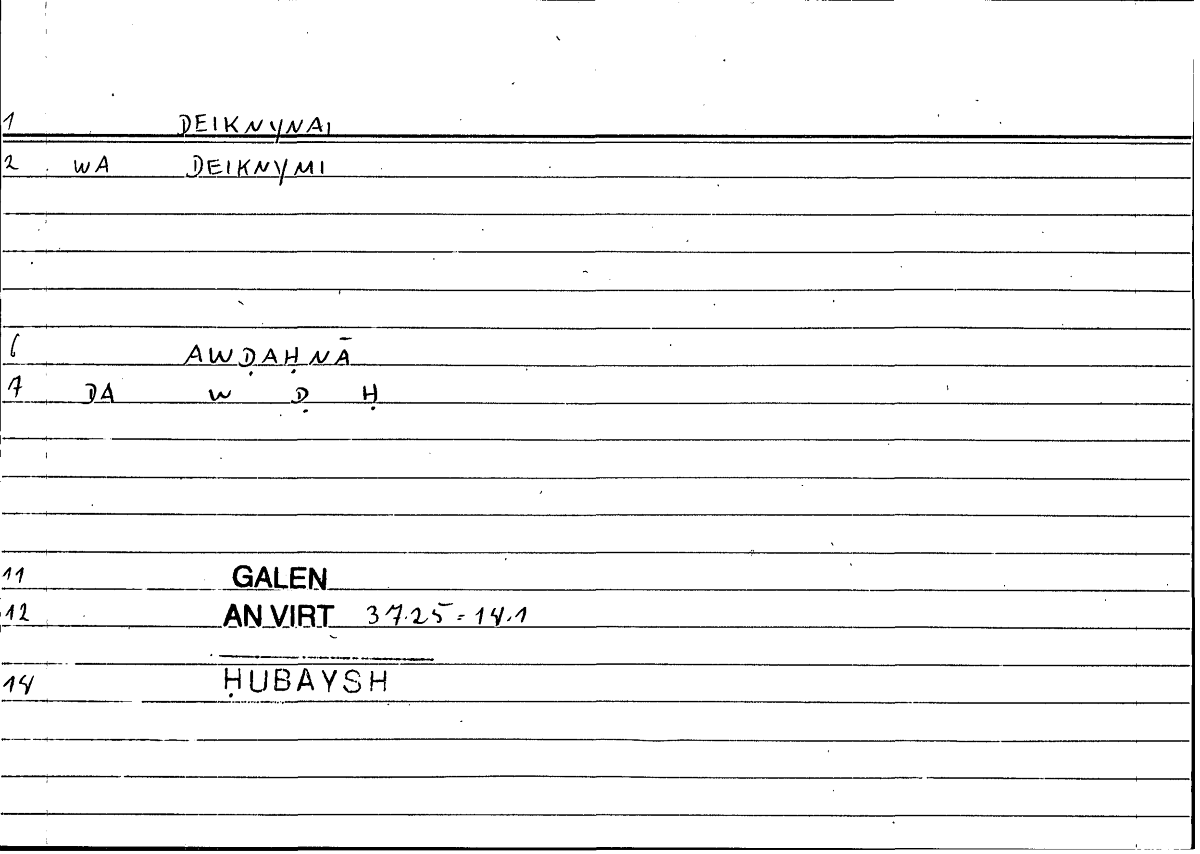 1 DEIKNYNAI
2 WA DEIKNYMI
6 AWḌAḤNĀ
7 DA W Ḍ Ḥ
11 GALEN
12 AN VIRT 37.25=14.1
14 ḤUBAYSH